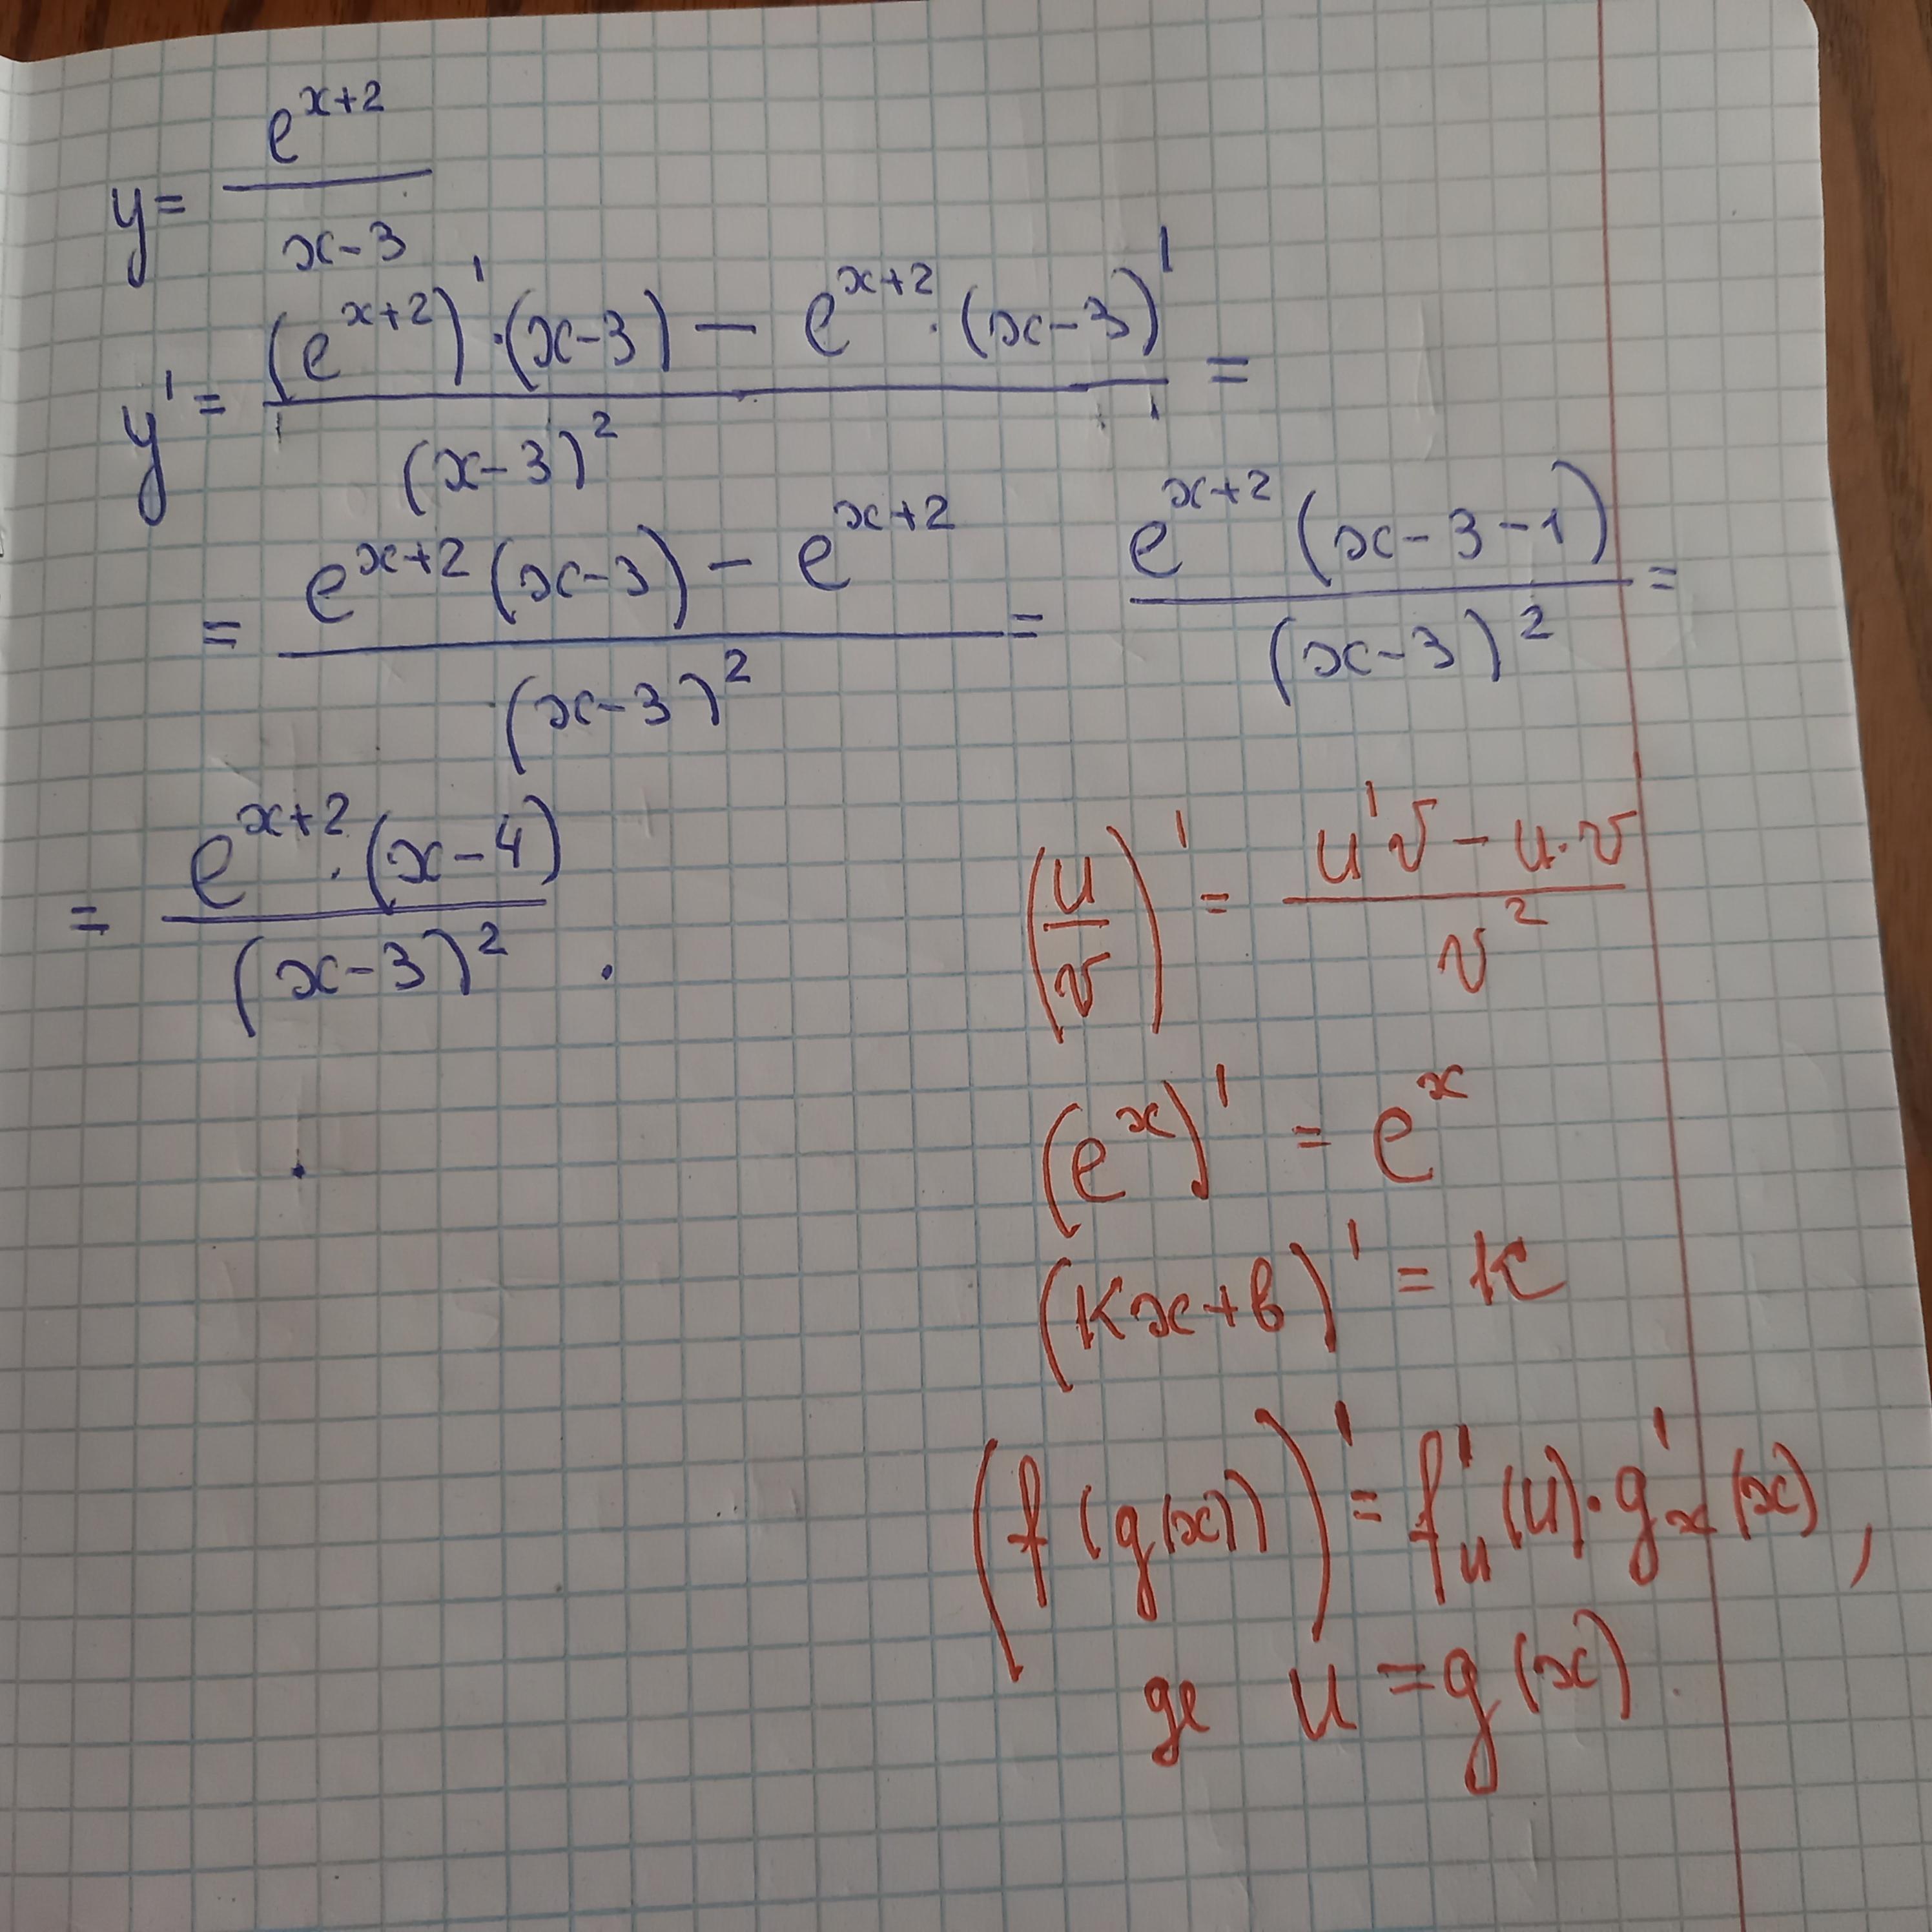 y = e^(x+2) / (x-3)
y' = ((e^(x+2))' · (x-3) - e^(x+2) · (x-3)') / (x-3)^2 =
= (e^(x+2) (x-3) - e^(x+2)) / (x-3)^2 = e^(x+2) (x-3-1) / (x-3)^2 =
= e^(x+2) · (x-4) / (x-3)^2 .
(u/v)' = (u'v - u·v) / v^2
(e^x)' = e^x
(кx+в)' = к
(f(g(x)))' = f'_u (u) · g'_x (x) ,
де u = g(x).